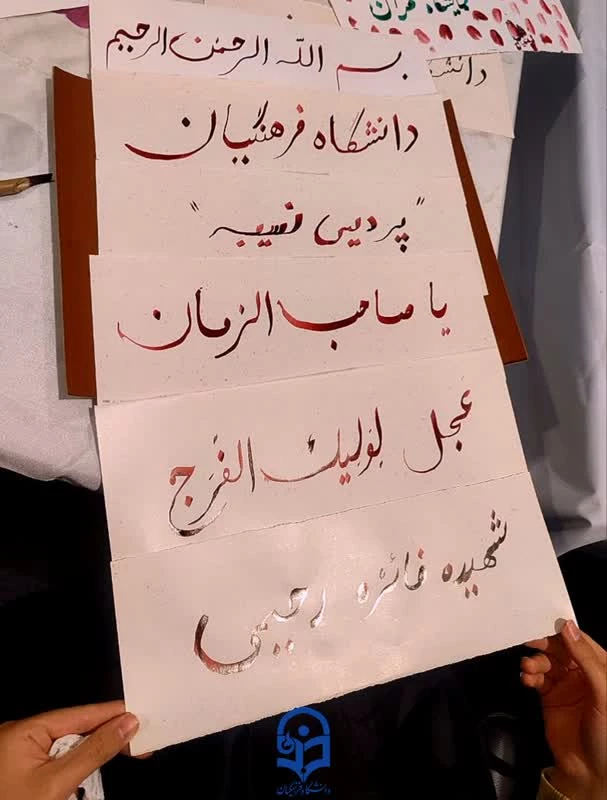 نمایشگاه قرآن
بسم الله الرحمن الرحیم
دانشگاه فرهنگیان
"پردیس نسیبه"
یا صاحب الزمان
عَجل لِوَلیِک الفَرَج
شهیده فائزه رحیمی
دانشگاه فرهنگیان